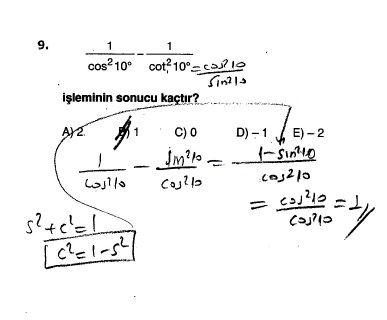 9. 1/cos²10° − 1/cot²10° = cos²10/sin²10
işleminin sonucu kaçtır?
A) 2 B) 1 C) 0 D) −1 E) −2
1/cos²10 − sin²10/cos²10 = 1−sin²10/cos²10
= cos²10/cos²10 = 1,
s²+c²=1
c²=1−s²